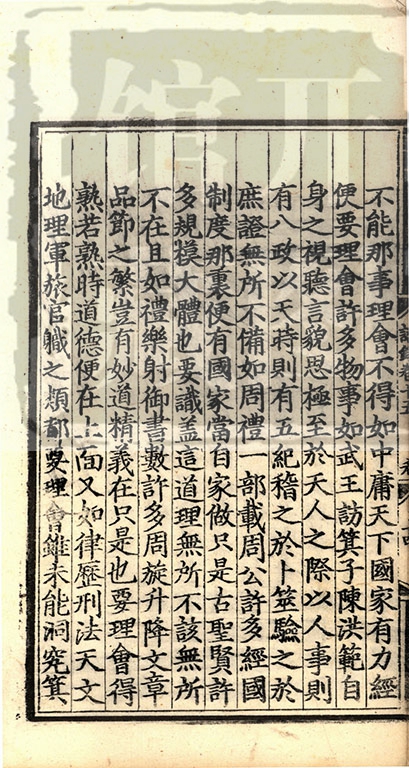 不能那事理會不得如中庸天下國家有九經
便要理會許多物事如武王訪箕子陳洪範自
身之視聽言貌思極至於天人之際以人事則
有八政以天時則有五紀稽之於卜筮驗之於
庶證無所不備如周禮一部載周公許多經國
制度那裏便有國家當自家做只是古聖賢許
多規模大體也要識盖這道理無所不該無所
不在且如禮樂射御書數許多周旋升降文章
品節之繁豈有妙道精義在只是也要理會得
熟若熟時道德便在上面又如律曆刑法天文
地理軍旅官職之類都要理會雖未能洞究箕